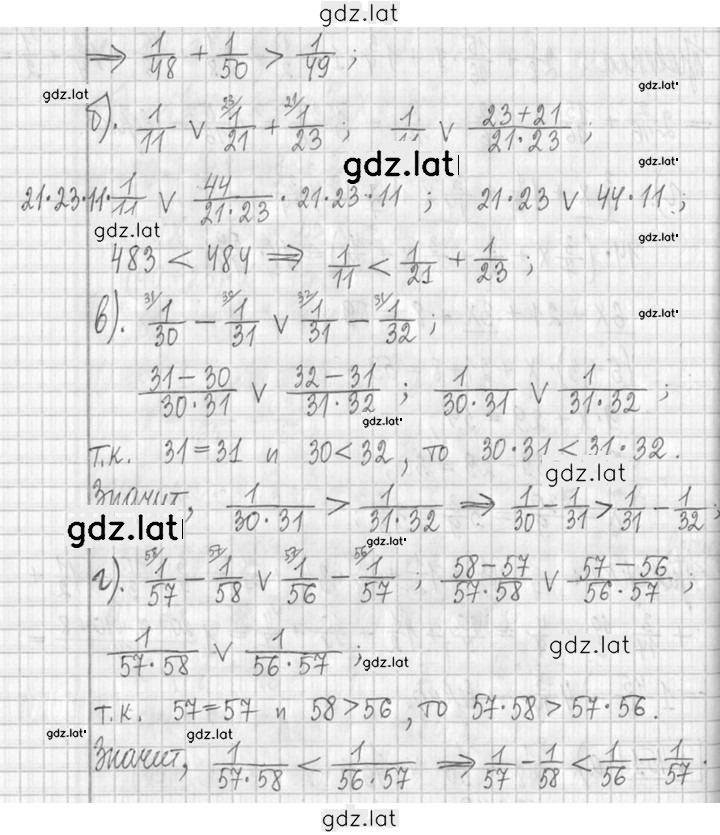 gdz.lat
⟹ 1/48 + 1/50 > 1/49 ;
gdz.lat gdz.lat
б). 1/11 ∨ ²³⁾1/21 + ²¹⁾1/23 ; 1/11 ∨ (23+21)/(21·23) ;
gdz.lat gdz.lat
21·23·11·1/11 ∨ 44/(21·23) · 21·23·11 ; 21·23 ∨ 44·11 ;
gdz.lat gdz.lat
483 < 484 ⟹ 1/11 < 1/21 + 1/23 ;
gdz.lat
в). ³¹⁾1/30 − ³⁰⁾1/31 ∨ ³²⁾1/31 − ³¹⁾1/32 ;
(31−30)/(30·31) ∨ (32−31)/(31·32) ; 1/(30·31) ∨ 1/(31·32) ;
gdz.lat gdz.lat
т.к. 31=31 и 30<32, то 30·31 < 31·32.
gdz.lat
Значит, 1/(30·31) > 1/(31·32) ⟹ 1/30 − 1/31 > 1/31 − 1/32 ;
gdz.lat gdz.lat
г). ⁵⁸⁾1/57 − ⁵⁷⁾1/58 ∨ ⁵⁷⁾1/56 − ⁵⁶⁾1/57 ; (58−57)/(57·58) ∨ (57−56)/(56·57) ;
1/(57·58) ∨ 1/(56·57) ;
gdz.lat gdz.lat
т.к. 57=57 и 58>56, то 57·58 > 57·56.
gdz.lat gdz.lat gdz.lat
Значит, 1/(57·58) < 1/(56·57) ⟹ 1/57 − 1/58 < 1/56 − 1/57 .
gdz.lat